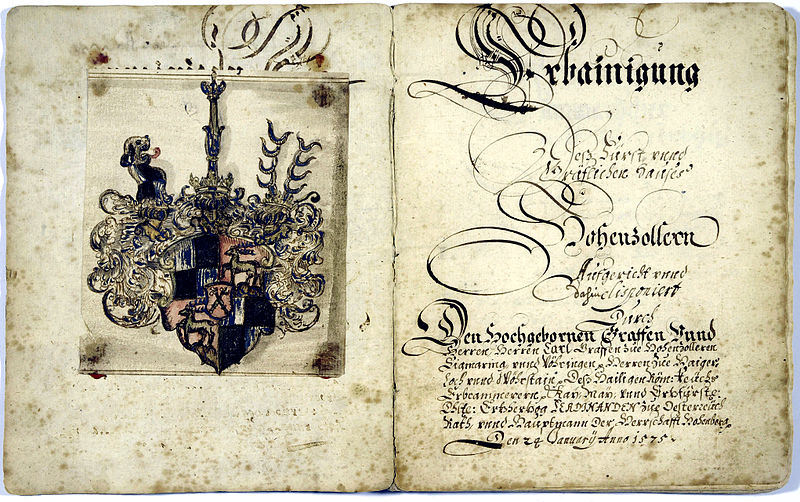 Erbainigung
Deß Fürst vnnd
Gräflichen Hauses
Hohenzollern
Aufgericht vnnd
disponiert
Durch
Den Hochgebornen Graffen Vnnd
Herren, Herren Carl Graffen zue Hohenzolleren
Sigmaring vnnd Vöhringen, Herren zue Haiger-
loch vnnd Wöhrstain, Deß Hailigen Röm: Reichs
Erbcammerern, Kay: May: vnnd
Erzherzog FERDINANDEN zue Oesterreich
Rath vnnd Hauptmann Der Herrschafft Hohenberg
Den 24 January Anno 1575